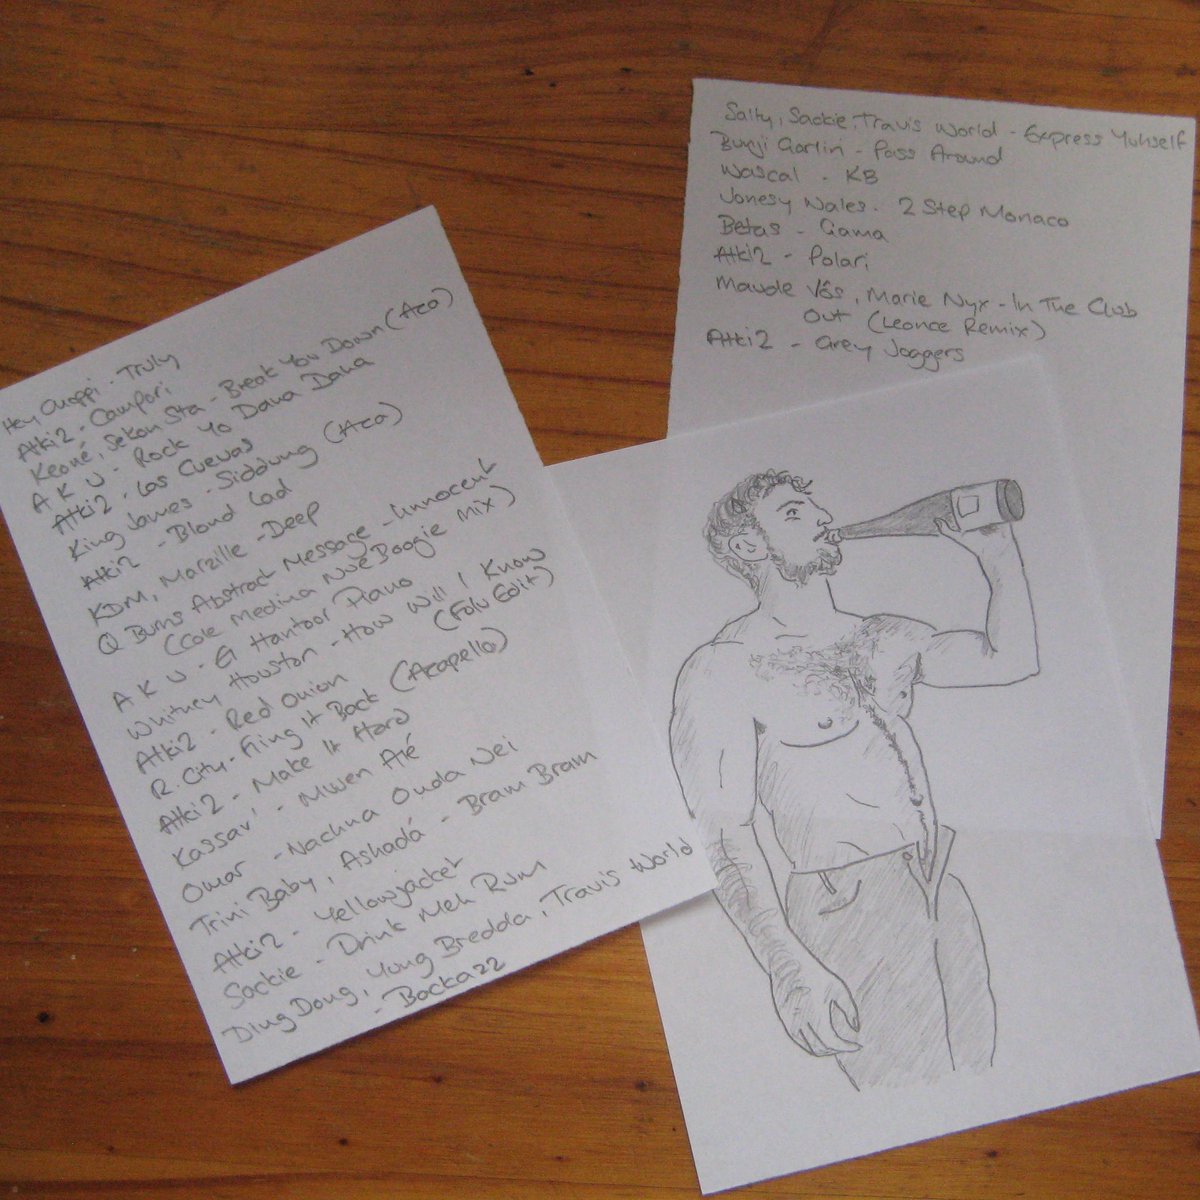 Hey Chappi - Truly
Atki2 - Campari
Keoné, Sekon Sta - Break You Down (Aca)
A K U - Rock Yo Dana Dana
Atki2 - Las Cuevas
King James - Siddung (Aca)
Atki2 - Blond Lad
KDM, Marzille - Deep
Q Burns Abstract Message - Innocent
(Cole Medina Nüe Boogie Mix)
A K U - El Hantoor Piano
Whitney Houston - How Will I Know
(Folu Edit)
Atki2 - Red Onion
R. City - Fling It Back (Acapello)
Atki2 - Make It Hard
Kassav' - Mwen Alé
Omar - Nachna Onda Nei
Trini Baby, Ashadá - Bram Bram
Atki2 - Yellowjacket
Sackie - Drink Meh Rum
Ding Dong, Yung Bredda, Travis World
- Backazz
Salty, Sackie, Travis World - Express Yuhself
Bunji Garlin - Pass Around
Wascal - KB
Jonesy Wales - 2 Step Monaco
Betas - Gama
Atki2 - Polari
Maude Vôs, Marie Nyx - In The Club
Out (Leonce Remix)
Atki2 - Grey Joggers